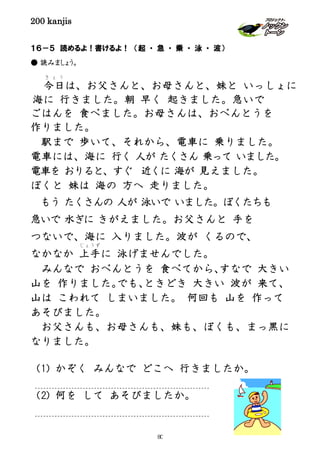 200 kanjis
プロジェクト
ハックルン
トーイン
16-5 読めるよ！書けるよ！（起・急・乗・泳・波）
● 読みましょう。
きょう
今日は、お父さんと、お母さんと、妹と いっしょに
海に 行きました。朝 早く 起きました。急いで
ごはんを 食べました。お母さんは、おべんとうを
作りました。
駅まで 歩いて、それから、電車に 乗りました。
電車には、海に 行く 人が たくさん 乗って いました。
電車を おりると、すぐ 近くに 海が 見えました。
ぼくと 妹は 海の 方へ 走りました。
もう たくさんの 人が 泳いで いました。ぼくたちも
急いで 水ぎに きがえました。お父さんと 手を
つないで、海に 入りました。波が くるので、
じょうず
なかなか 上手に 泳げませんでした。
みんなで おべんとうを 食べてから、すなで 大きい
山を 作りました。でも、ときどき 大きい 波が 来て、
山は こわれて しまいました。 何回も 山を 作って
あそびました。
お父さんも、お母さんも、妹も、ぼくも、まっ黒に
なりました。
(1) かぞく みんなで どこへ 行きましたか。
(2) 何を して あそびましたか。
80